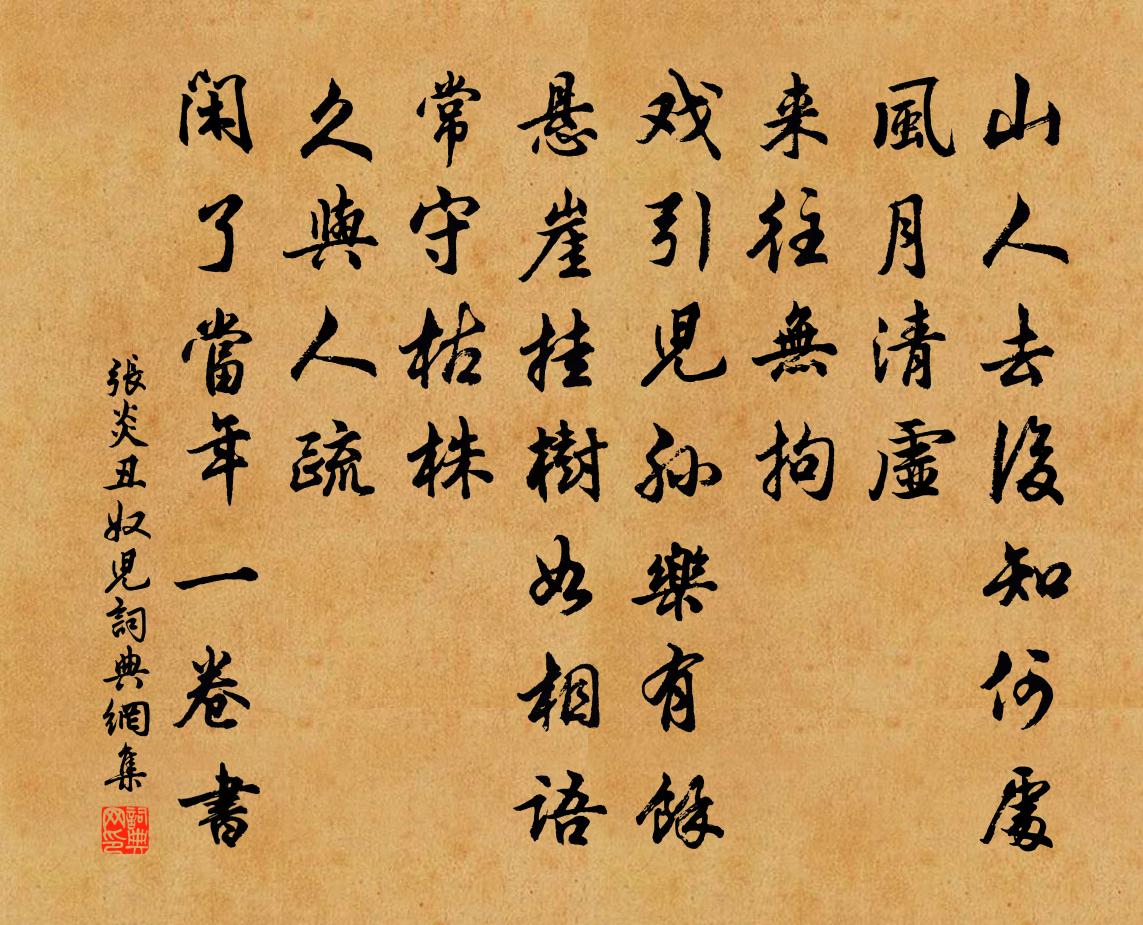 山人去後知何處
風月清虛
来往無拘
戏引児孫樂有餘
懸崖挂樹如相語
常守枯株
久與人疏
閑了當年一卷書
張炎丑奴児詞典網集
詞典網印